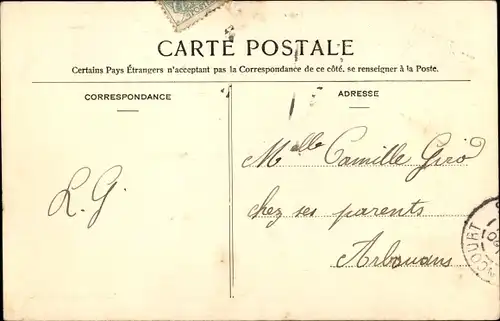 CARTE POSTALE
Certains Pays Étrangers n'acceptant pas la Correspondance de ce côté, se renseigner à la Poste.
CORRESPONDANCE
ADRESSE
L. G.
Melle Camille Giro
chez ses parents
Arbouans
COURT